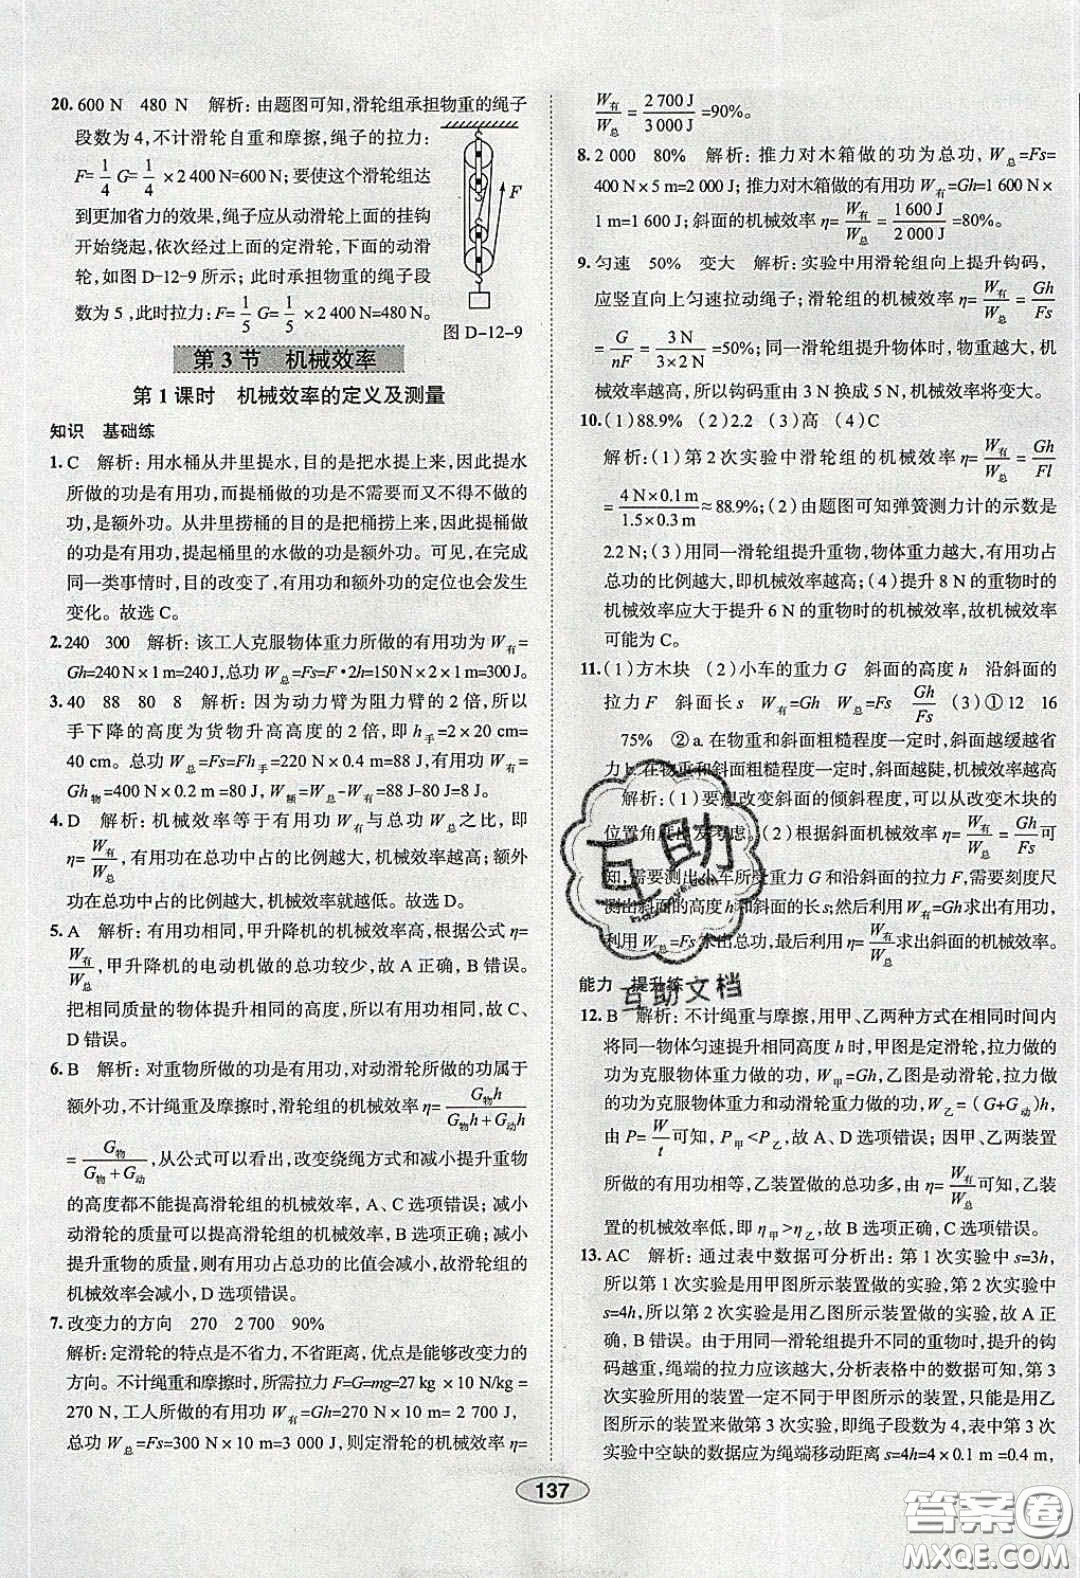 20. 600 N　480 N　解析:由题图可知,滑轮组承担物重的绳子
段数为 4,不计滑轮自重和摩擦,绳子的拉力:
F=1/4 G=1/4×2 400 N=600 N;要使这个滑轮组达
到更加省力的效果,绳子应从动滑轮上面的挂钩
开始绕起,依次经过上面的定滑轮,下面的动滑
轮,如图 D-12-9 所示;此时承担物重的绳子段
数为 5,此时拉力:F=1/5 G=1/5×2 400 N=480 N。
F
图 D-12-9
第 3 节　机械效率
第 1 课时　机械效率的定义及测量
知识　基础练
1. C　解析:用水桶从井里提水,目的是把水提上来,因此提水
所做的功是有用功,而提桶做的功是不需要而又不得不做的
功,是额外功。从井里捞桶的目的是把桶捞上来,因此提桶做
的功是有用功,提起桶里的水做的功是额外功。可见,在完成
同一类事情时,目的改变了,有用功和额外功的定位也会发生
变化。故选 C。
2. 240　300　解析:该工人克服物体重力所做的有用功为 W有=
Gh=240 N×1 m=240 J,总功 W总=Fs=F·2h=150 N×2×1 m=300 J。
3. 40　88　80　8　解析:因为动力臂为阻力臂的 2 倍,所以
手下降的高度为货物升高高度的 2 倍,即 h手=2×20 cm=
40 cm。总功 W总=Fs=Fh手=220 N×0.4 m=88 J,有用功 W有=
Gh物=400 N×0.2 m=80 J, W额=W总-W有=88 J-80 J=8 J。
4. D　解析:机械效率等于有用功 W有与总功 W总之比,即
η=W有/W总,有用功在总功中占的比例越大,机械效率越高;额外
功在总功中占的比例越大,机械效率就越低。故选 D。
5. A　解析:有用功相同,甲升降机的机械效率高,根据公式 η=
W有/W总,甲升降机的电动机做的总功较少,故 A 正确,B 错误。
把相同质量的物体提升到相同的高度,所用时间未知,故 C、
D 错误。
6. B　解析:对重物所做的功是有用功,对动滑轮所做的功属于
额外功,不计绳重及摩擦时,滑轮组的机械效率 η=G物h/(G物h+G动h)
=G物/(G物+G动),从公式可以看出,改变绕绳方式和减小提升重物
的高度都不能提高滑轮组的机械效率,A、C 选项错误;减小
动滑轮的质量可以提高滑轮组的机械效率,B 选项正确;减小
提升重物的质量,有用功占总功的比值减小,滑轮组的
机械效率会减小,D 选项错误。
7. 改变力的方向　270　2 700　90%
解析:定滑轮的特点是不省力,不省距离,优点是能够改变力的
方向。不计绳重和摩擦时,所需拉力 F=G=mg=27 kg×10 N/kg=
270 N,工人所做的有用功 W有=Gh=270 N×10 m=2 700 J,
总功 W总=Fs=300 N×10 m=3 000 J,则定滑轮的机械效率 η=
W有/W总=2 700 J/3 000 J=90%。
8. 2 000　80%　解析:推力对木箱做的功为总功,W总=Fs=
400 N×5 m=2 000 J;推力对木箱做的有用功 W有=Gh=1 600 N×
1 m=1 600 J;斜面的机械效率 η=W有/W总=1 600 J/2 000 J=80%。
9. 匀速　50%　变大　解析:实验中用滑轮组向上提升钩码,
应竖直向上匀速拉动绳子;滑轮组的机械效率 η=W有/W总=Gh/Fs
=G/nF=3 N/(3×2 N)=50%;同一滑轮组提升物体时,物重越大,机
械效率越高,所以钩码重由 3 N 换成 5 N,机械效率将变大。
10. (1)88.9%　(2)2.2　(3)高　(4)C
解析:(1)第 2 次实验中滑轮组的机械效率 η=W有/W总=Gh/Fl
=(4 N×0.1 m)/(1.5×0.3 m)≈88.9%;(2)由题图可知弹簧测力计的示数是
2.2 N;(3)用同一滑轮组提升重物,物体重力越大,有用功占
总功的比例越大,即机械效率越高;(4)提升 8 N 的重物时的
机械效率应大于提升 6 N 的重物时的机械效率,故机械效率
可能为 C。
11. (1)方木块　(2)小车的重力 G　斜面的高度 h　沿斜面的
拉力 F　斜面长 s　W有=Gh　W总=Fs　Gh/Fs　(3)①12　16
75%　②a. 在物重和斜面粗糙程度一定时,斜面越缓越省
力 b. 在物重和斜面粗糙程度一定时,斜面越陡,机械效率越高
解析:(1)要想改变斜面的倾斜程度,可以从改变木块的
位置角度出发考虑。(2)根据斜面机械效率 η=W有/W总=Gh/Fs可
知,需要测出小车所受重力 G 和沿斜面的拉力 F,需要刻度尺
测出斜面的高度 h 和斜面的长 s;然后利用 W有=Gh 求出有用功,
利用 W总=Fs 求出总功,最后利用 η=W有/W总求出斜面的机械效率。
能力　提升练
12. B　解析:不计绳重与摩擦,用甲、乙两种方式在相同时间内
将同一物体匀速提升相同高度 h 时,甲图是定滑轮,拉力做的
功为克服物体重力做的功,W甲=Gh,乙图是动滑轮,拉力做
的功为克服物体重力和动滑轮重力做的功,W乙=(G+G动)h,
由 P=W/t可知,P甲<P乙,所以 A、D 选项错误;因甲、乙两装置
所做的有用功相等,乙装置做的总功多,由 η=W有/W总可知,乙装
置的机械效率低,即 η甲>η乙,故 B 选项正确,C 选项错误。
13. AC　解析:通过表中数据可分析出:第 1 次实验中 s=3h,
所以第 1 次实验是用甲图所示装置做的实验,第 2 次实验中
s=4h,所以第 2 次实验是用乙图所示装置做的实验,故 A 正
确,B 错误。由于用同一滑轮组提升不同的重物时,提升的钩
码越重,绳端的拉力应该越大,分析表格中的数据可知,第 3
次实验所用的装置一定不同于甲图所示的装置,只能是用乙
图所示的装置来做第 3 次实验,即绳子段数为 4,表中第 3 次
实验中空缺的数据应为绳端移动距离 s=4h=4×0.1 m=0.4 m,
137
互助
互助文档
答案圈
MXQE.COM